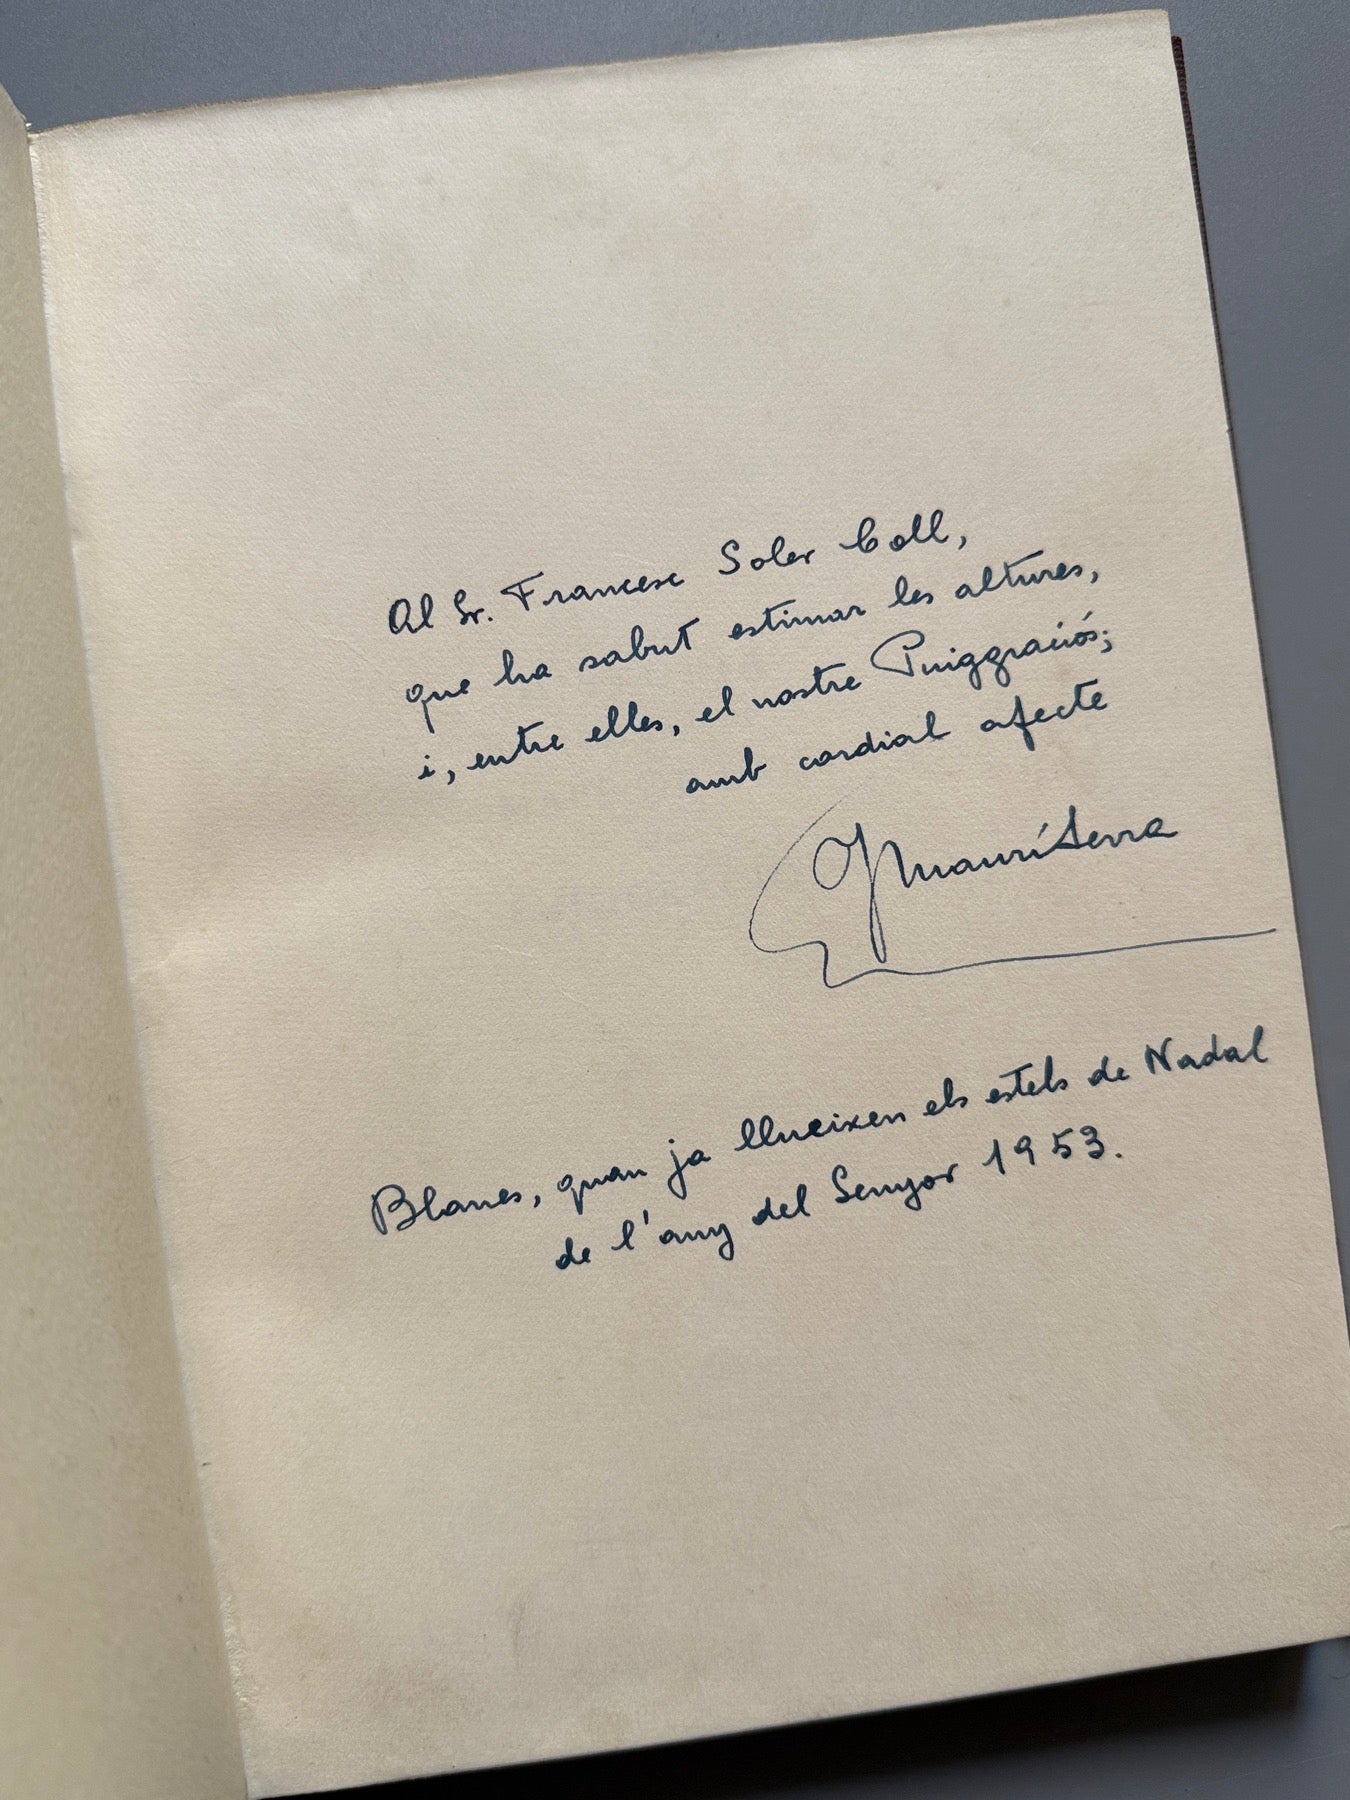 Al Sr. Francesc Soler Coll,
que ha sabut estimar les altures,
i, entre elles, el nostre Puiggraciós;
amb cordial afecte
J Maurí Serra
Blanes, quan ja llueixen els estels de Nadal
de l'any del Senyor 1953.